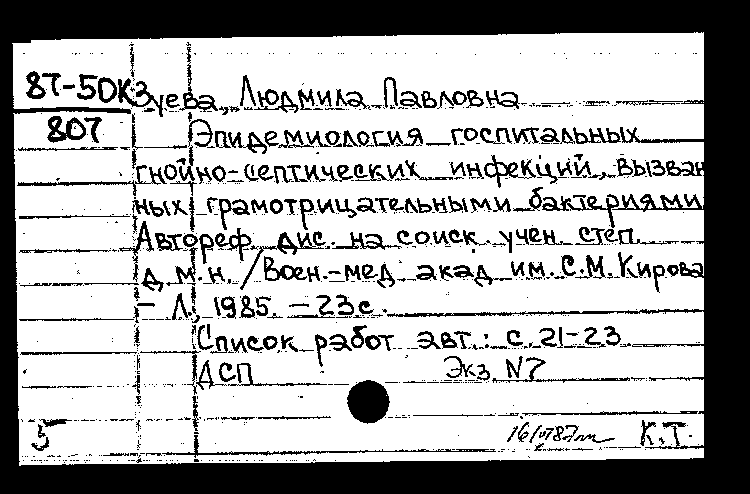 87-5ОКЗ
807
Зуева, Людмила Павловна
Эпидемиология госпитальных
гнойно-септических инфекций, вызван
ных грамотрицательными бактериями
Автореф. дис. на соиск. учен. степ.
д.м.н. / Воен.-мед. акад. им. С.М. Кирова
– Л., 1985. – 23 с.
Список работ авт.: с. 21-23
ДСП Экз. N7
5 К.Т.